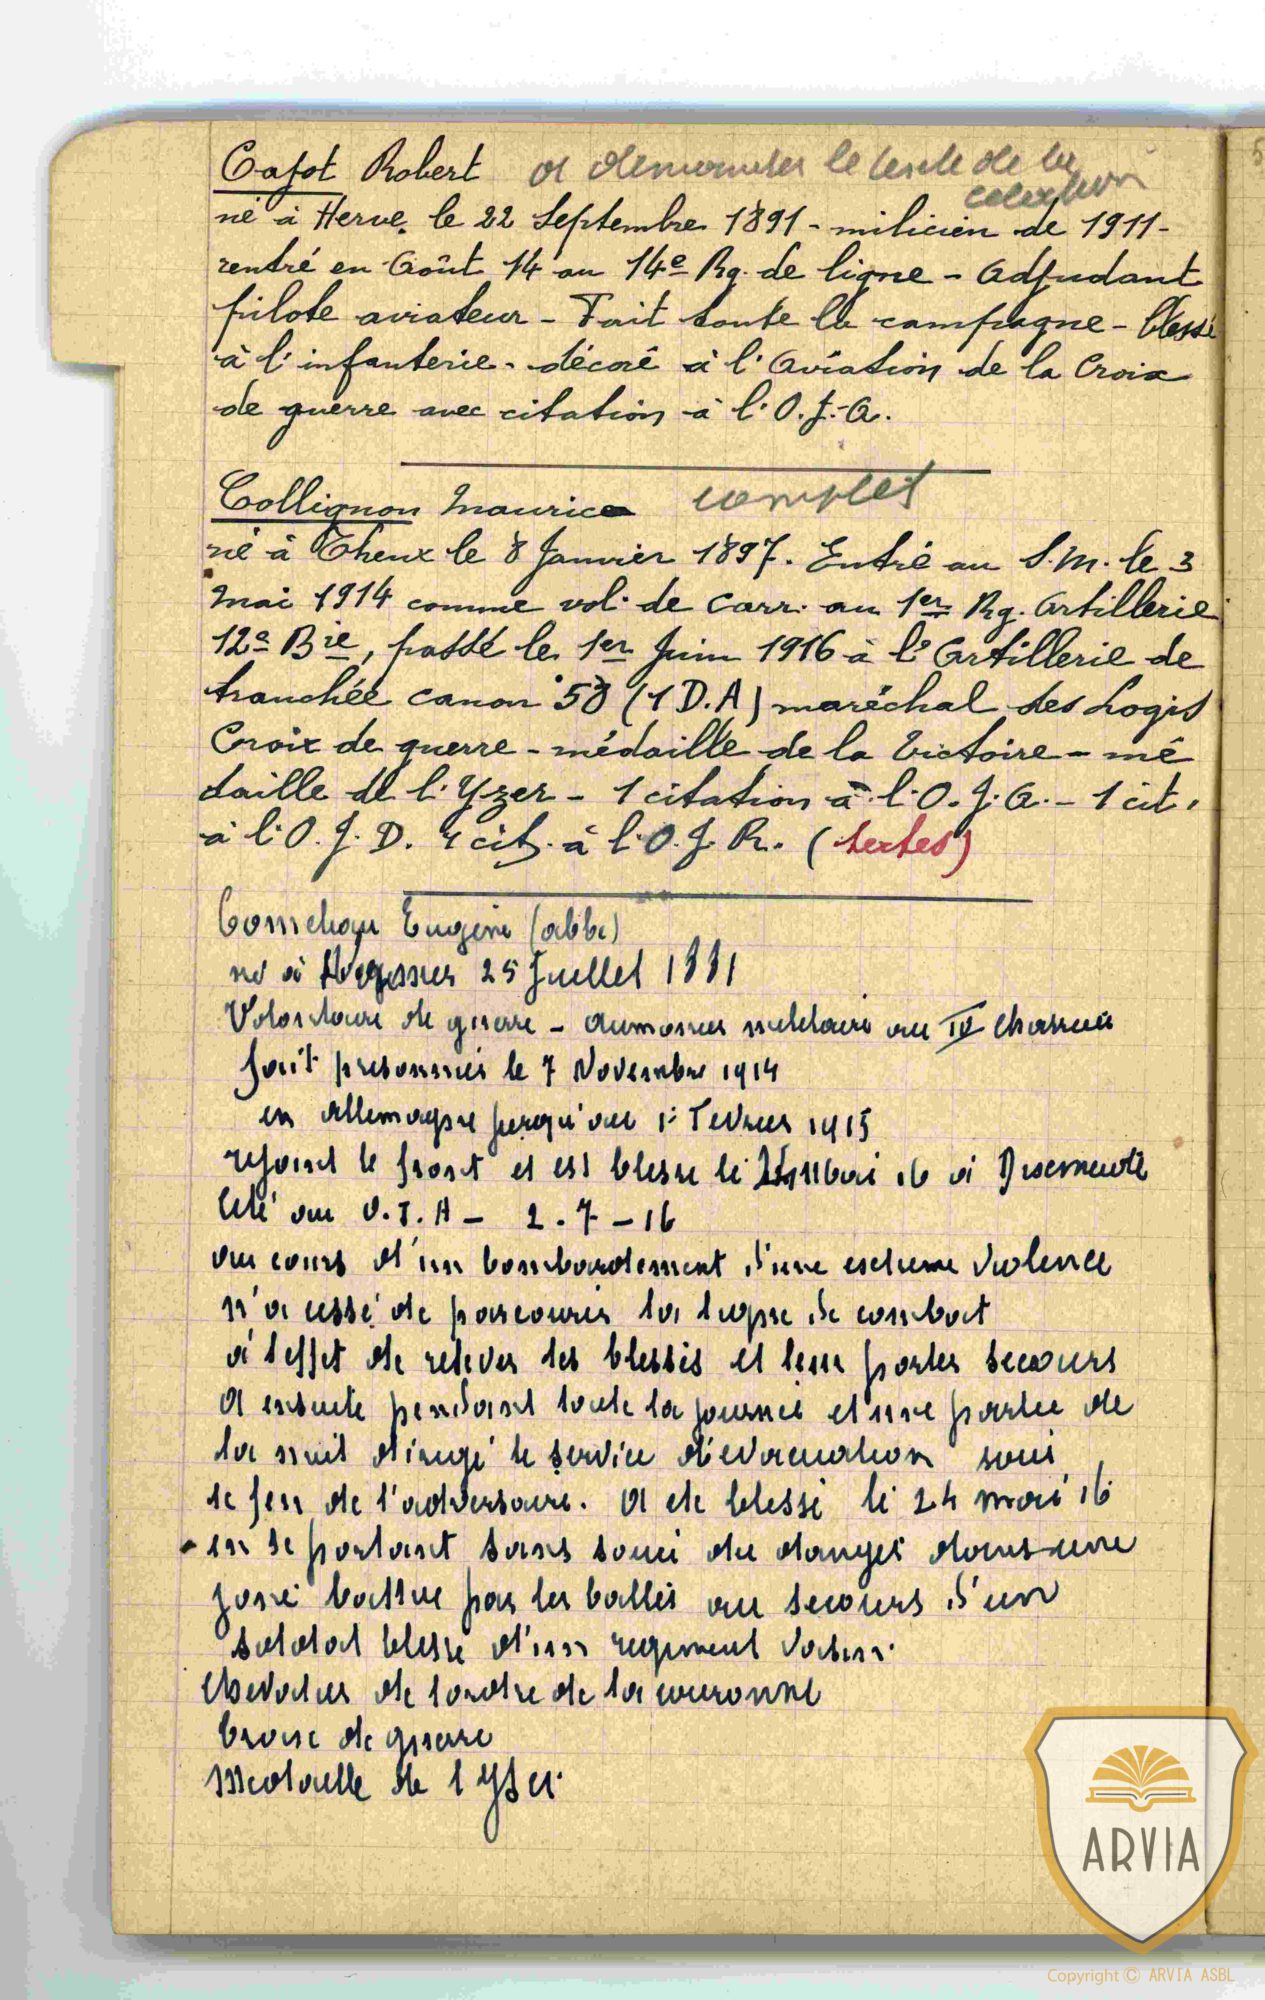 Cajot Robert a demander le texte de la
citation
né à Herve le 22 Septembre 1891 - milicien de 1911 -
rentré en Août 14 au 14e Rg. de ligne - Adjudant
pilote aviateur - Fait toute la campagne - blessé
à l'infanterie - décoré à l'Aviation de la Croix
de guerre avec citation à l'O.J.A.
Collignon Maurice complet
né à Theux le 8 Janvier 1897. Entré au S.M. le 3
mai 1914 comme vol. de carr. au 1er Rg. Artillerie
12e Bie, passé le 1er Juin 1916 à l'Artillerie de
tranchée canon 58 (1 D.A) maréchal des Logis
Croix de guerre - médaille de la Victoire - mé
daille de l'Yzer - 1 citation à l'O.J.A. - 1 cit.
à l'O.J.D. 1 cit. à l'O.J.R. (textes)
Eugène (abbé)
né à 25 Juillet 1881
Volontaire de guerre - aumonier militaire au IV Chasseur
fait prisonnier le 7 Novembre 1914
en Allemagne jusqu'au 1r Fevrier 1915
rejoint le front et est blesse le Mai 16 à Dixemude
Cité au O.J.A - 2.7-16
au cours d'un bombardement d'une extreme violence
n'a cessé de parcourir la ligne de combat
à l'effet de relever les blessés et leur porter secours
A ensuite pendant toute la journée et une partie de
la nuit dirigé le service d'évacuation sous
le feu de l'adversaire. A été blessé le 24 mai 16
en se portant sans souci du danger dans une
zone battue par les balles au secours d'un
soldat blesse d'un regiment voisin.
Chevalier de l'ordre de la couronne
Croix de guerre
Medaille de l Yser
ARVIA
Copyright © ARVIA ASBL